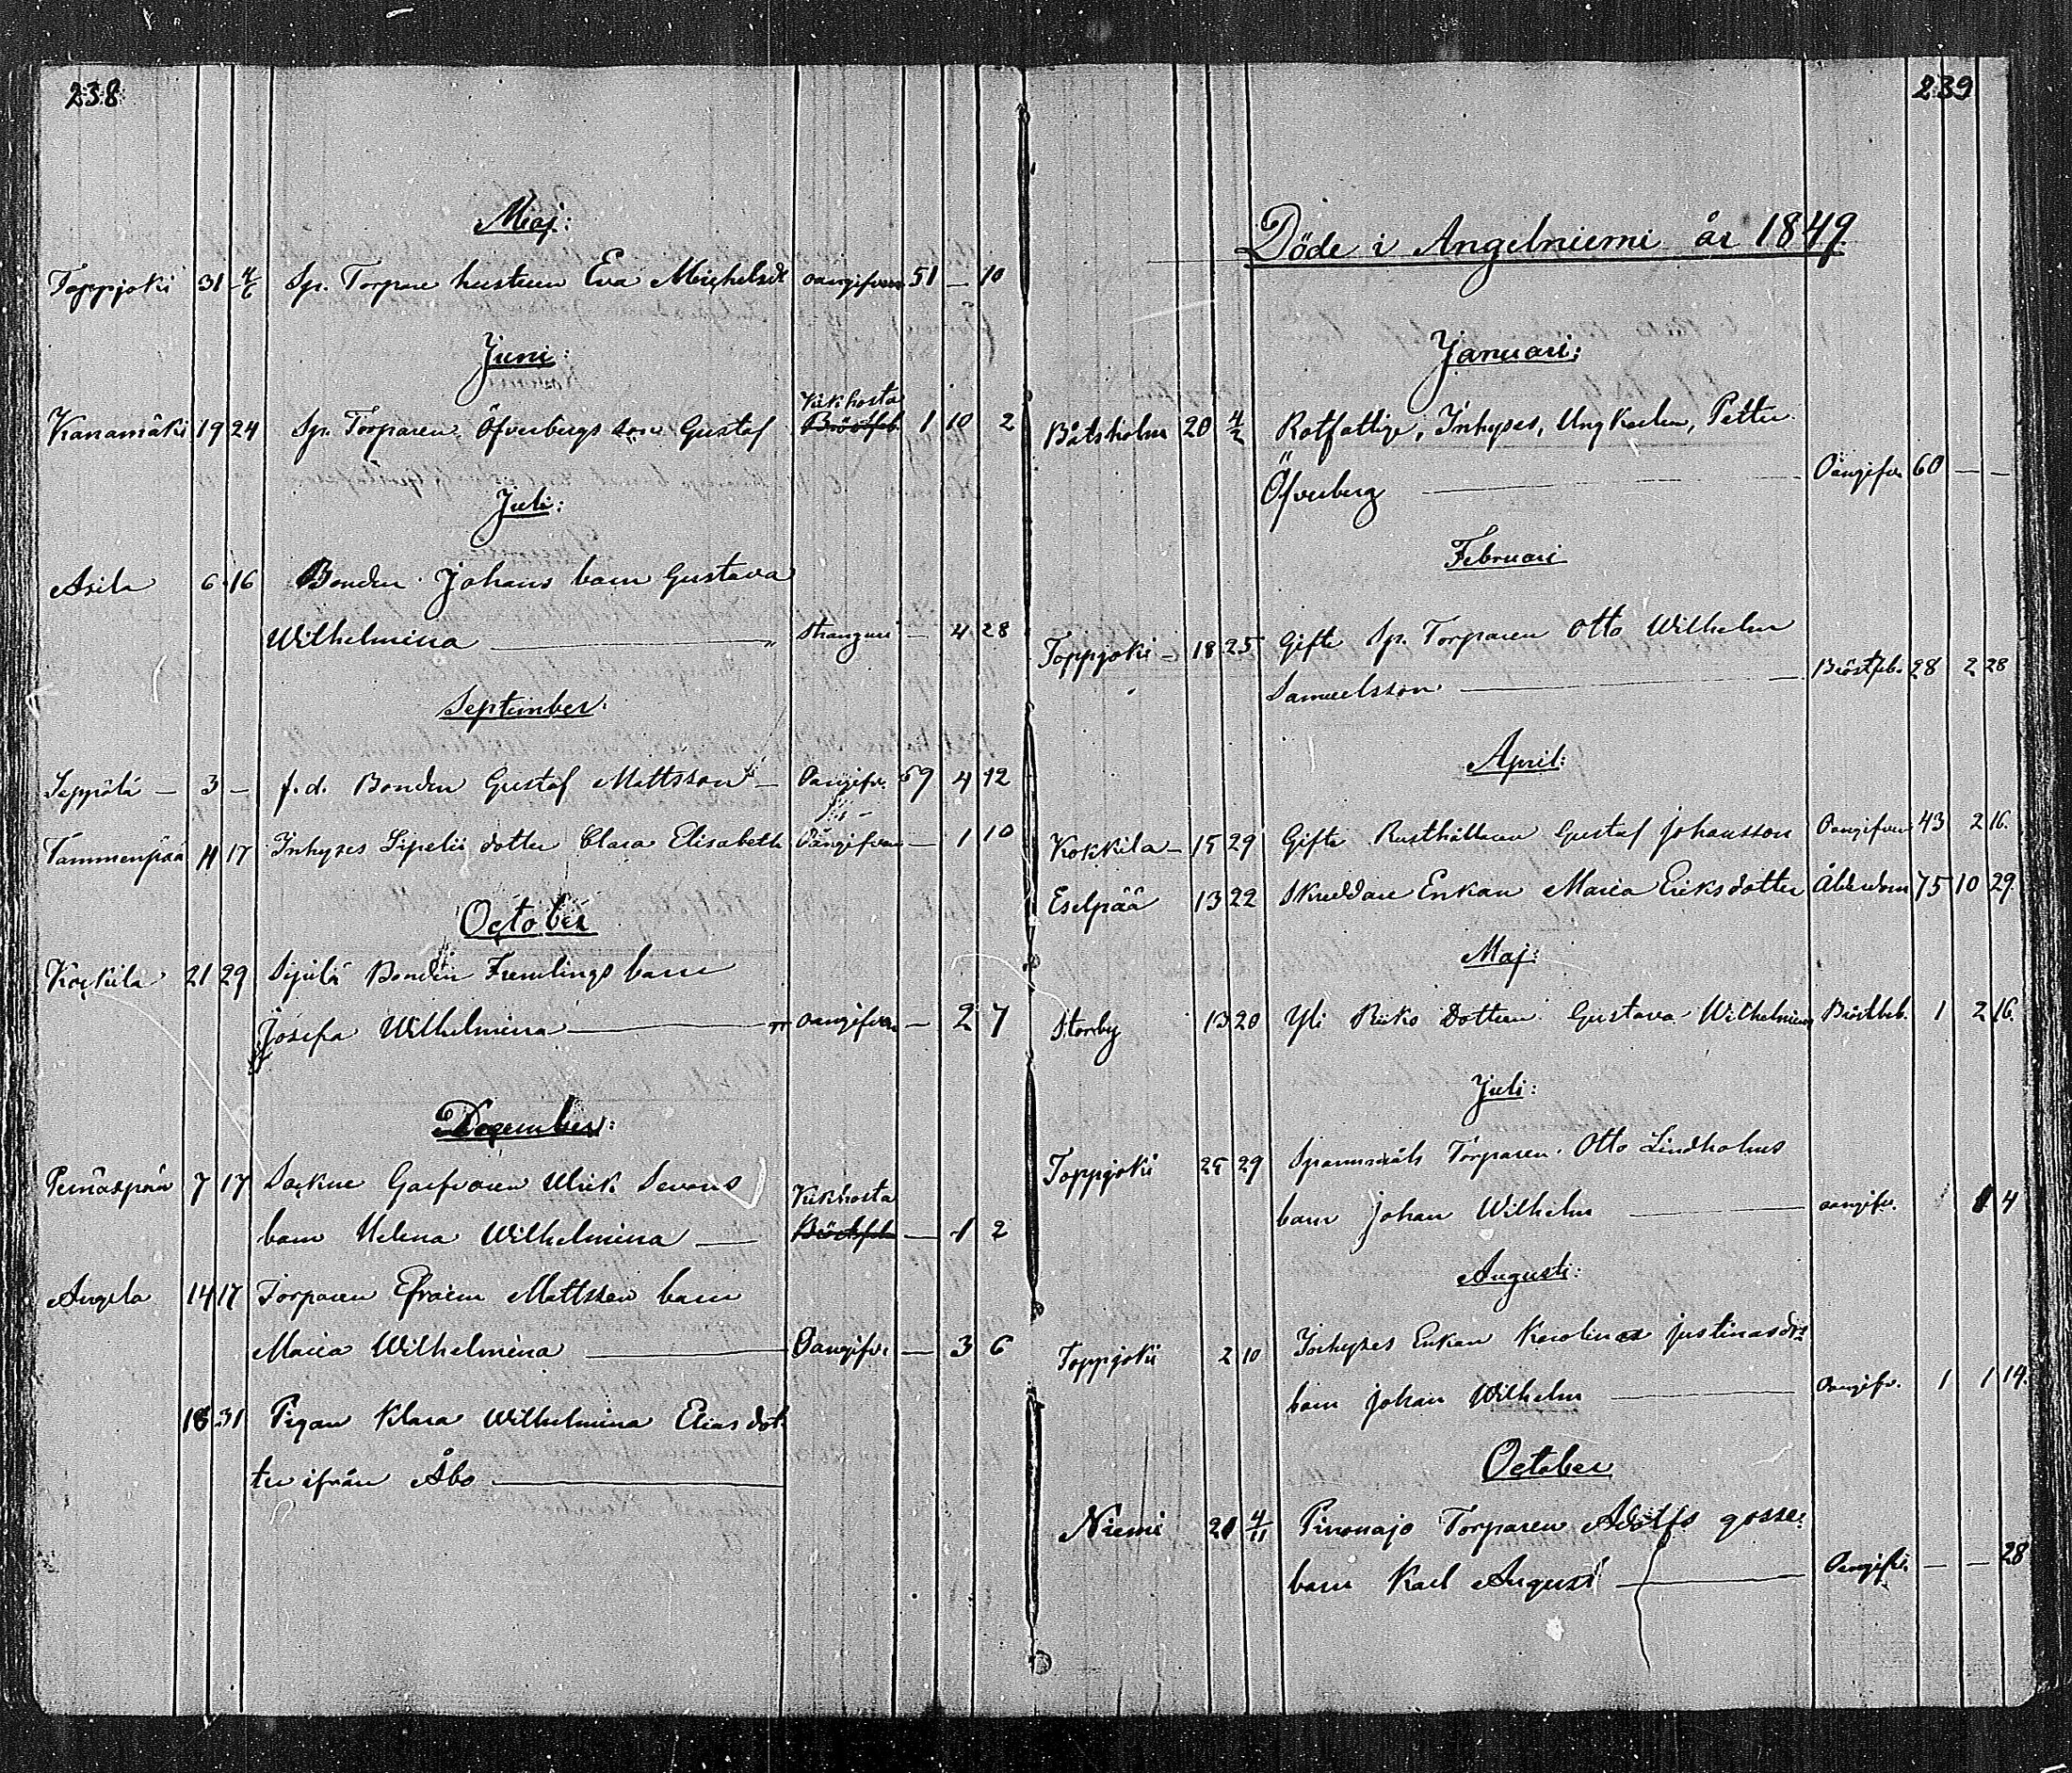 238
Maj:
Toppjoki 31 4/6 Sp. Torpare hustrun Eva Michelsd:r oangifven 51 — 10
Juni:
Kanamäki 19 24 Sp. Torparen Öfverbergs son Gustaf Kikhosta Bröstfeb. 1 10 2
Juli:
Asila 6 16 Bonden Johans barn Gustava
Wilhelmina — " Stranguri — 4 28
September:
Seppälä — 3 — f.d. Bonden Gustaf Mattsson — Oangifv. 59 4 12
Tammenpää 14 17 Inhyses Sipelii dotter Clara Elisabeth Oangifven — 1 10
October
Kokkila 21 29 Sipilä Bonden Fremlings barn
Josefa Wilhelmina — oangifven — 2 7
December:
Pernäspää 7 17 Garfvaren Ulrik barn
barn Helena Wilhelmina — Kikhosta Bröstfeb — 1 2
Angela 14 17 Torparen Efraim Mattsson barn
Maria Wilhelmina — Oangifv. — 3 6
18 31 Pigan Klara Wilhelmina Eliasdot
ter ifrån Åbo —
239
Döde i Angelniemi år 1849.
Januari:
Båtsholm 20 4/2 Rotfattige, Inhyses, Ungkarlen, Petter
Öfverberg — Oangifv. 60 — —
Februari
Toppjoki — 18 25 Gifte Sp. Torparen Otto Wilhelm
Samuelsson — Bröstfeb. 28 2 28
April:
Kokkila — 15 29 Gifte Rusthållaren Gustaf Johansson Oangifven 43 2 16.
Eselpää 13 22 Skräddare Enkan Maria Eriksdotter Ålderdom 75 10 29.
Maj:
Storby 13 20 Yli Riiko Dottren Gustava Wilhelmina Bröstfeb. 1 2 16.
Juli:
Toppjoki 25 29 Spannmåls Torparen Otto Lindholms
barn Johan Wilhelm — oangifv. 1 4
Augusti:
Toppjoki 2 10 Inhyses Enkan Karolina Justinasdr:s
barn Johan Wilhelm — Oangifv. 1 1 14.
October
Niemi 21 4/11 Pinonajo Torparen Adolfs gosse:
barn Karl August — Oangifv. — — 28